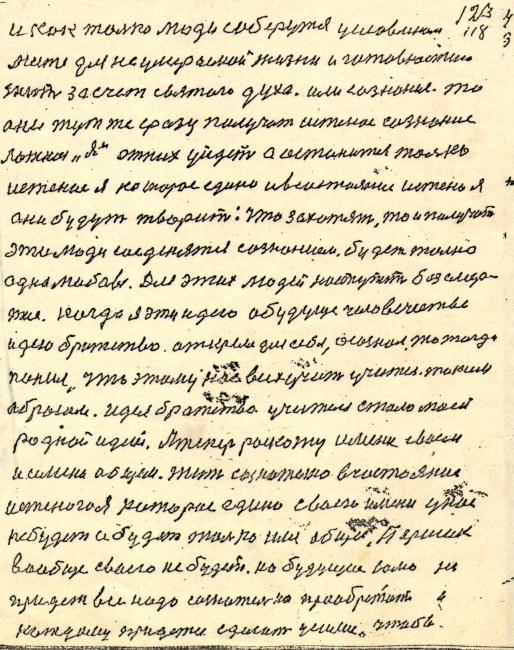 123
118
и как толко люди соберутя условином
месте для неумераемой жизни и готовностю
жить засчет святого духа. или сознания. то
они тут же сразу получат истеное сознание
ложная „Я" отних уйдет а останится толко
истеное я которое едино и всостояние истеноя
они будут творит: что захотят, то и получат
эти люди соеденятся сознанием. будет толко
одна любовь. Для этих людей наступит безсмер-
тие. когда я эту идею обудуще человечестве
идею братство. открыл для себя, осознал то тогда
понил, что этому нас всех учит учитель. таким
образом. идея братство учителя стало моей
родной идей. А теперь роскожу имене своем
и имене общем. жить сознателно в состояние
истеногоя которое едино своего имени у нас
небудет а будет толко имя общее. Первых
вообще своего не будет. но будущие само не
придет все надо сознателно приобретат и
каждому придется сделат усилие, чтобы.